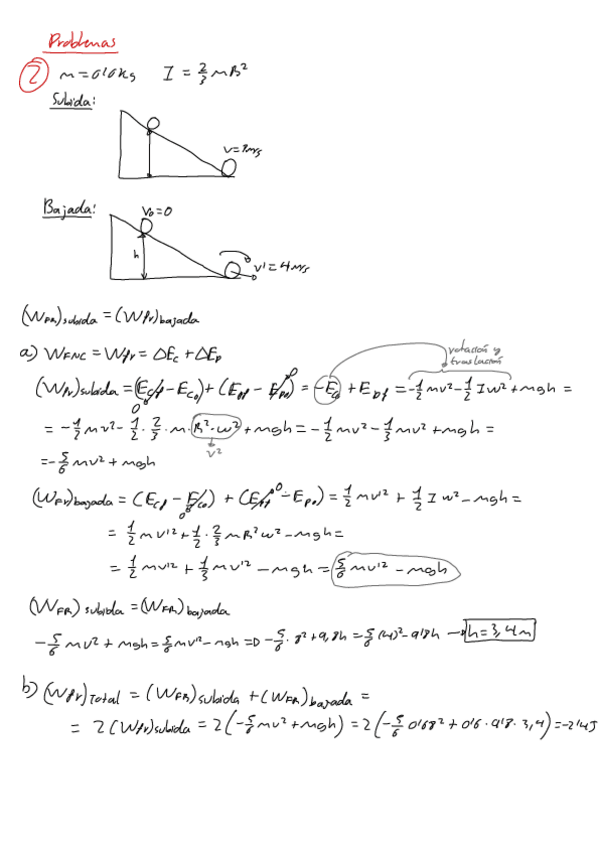 Problemas
② m = 0'6 kg I = 2/3 mR²
Subida:
v = 8 m/s
Bajada:
v₀ = 0
h
v' = 4 m/s
(W_FR)subida = (W_fr)bajada
a) W_FNC = W_fr = ΔE_c + ΔE_p
rotación y
traslación
(W_fr)subida = (E_cf - E_c0) + (E_pf - E_p0) = -E_c0 + E_pf = -1/2 mv² - 1/2 Iω² + mgh =
= -1/2 mv² - 1/2 · 2/3 · m · R² · ω² + mgh = -1/2 mv² - 1/3 mv² + mgh =
v²
= -5/6 mv² + mgh
(W_fr)bajada = (E_cf - E_c0) + (E_pf - E_p0) = 1/2 mv² + 1/2 I ω² - mgh =
= 1/2 mv'² + 1/2 · 2/3 mR²ω² - mgh =
= 1/2 mv'² + 1/3 mv'² - mgh = 5/6 mv'² - mgh
(W_FR)subida = (W_FR)bajada
-5/6 mv² + mgh = 5/6 mv'² - mgh => -5/6 · 8² + 9,8h = 5/6 (4)² - 9'8h → h = 3,4 m
b) (W_fr)Total = (W_FR)subida + (W_FR)bajada =
= 2 (W_fr)subida = 2(-5/6 mv² + mgh) = 2(-5/6 0'6 8² + 0'6 · 9'8 · 3,4) = -24 J